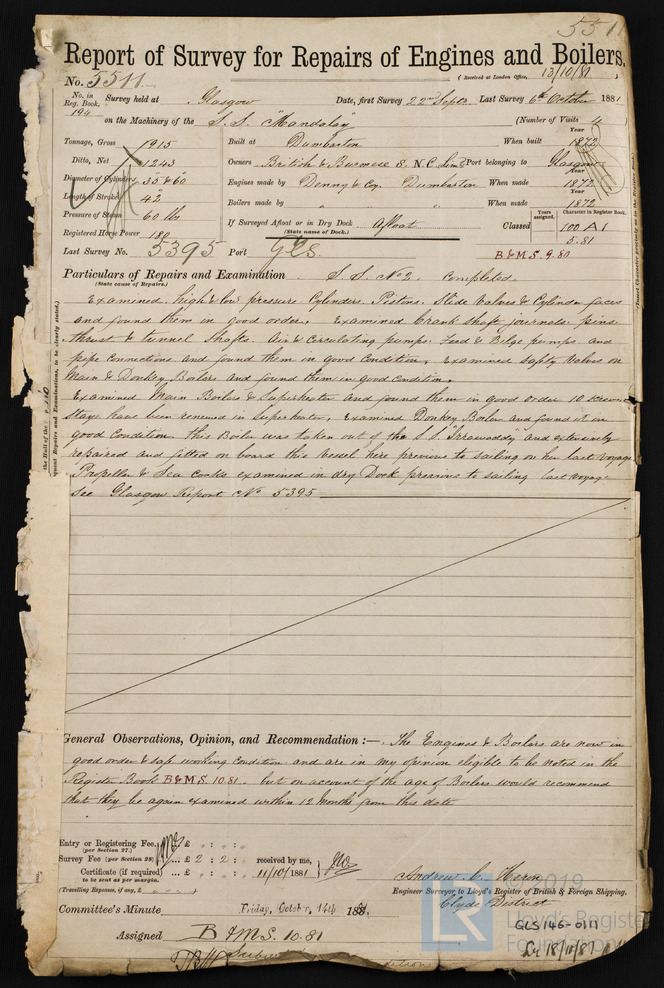 5511
Report of Survey for Repairs of Engines and Boilers.
(Received at London Office, 13/10/81)
No. 5511
No. in Reg. Book. 194 Survey held at Glasgow Date, first Survey 22nd Sept. Last Survey 6th October 1881
on the Machinery of the S.S. "Mandalay" (Number of Visits 4)
Tonnage, Gross 1915 Built at Dumbarton When built Year 1872
Ditto, Net 1243 Owners British & Burmese S. N. Co. Lim. Port belonging to Glasgow
Diameter of Cylinders 33 & 60 Engines made by Denny & Co. Dumbarton When made Year 1872
Length of Stroke 42 Boilers made by " " When made Year 1872
Pressure of Steam 60 lb If Surveyed Afloat or in Dry Dock Afloat Classed Years assigned. Character in Register Book. 100 A1
Registered Horse Power 180 (State name of Dock.) 5.81
Last Survey No. 5395 Port Gls. B&M.S. 9.80
Particulars of Repairs and Examination S. S. No 2. Completed.
(State cause of Repairs.)
Examined high & low pressure Cylinders, Pistons, Slide Valves & Cylinder faces
and found them in good order, Examined Crank shaft journals pins
Thrust & tunnel shafts. Air & Circulating pumps. Feed & Bilge pumps and
pipe connections and found them in good Condition, Examined safty Valves on
Main & Donkey Boilers and found them in good Condition,
Examined Main Boilers & Superheater and found them in good order 10 screwed
Stays have been renewed in Superheater, Examined Donkey Boiler and found it in
good Condition. This Boiler was taken out of the S.S. "Irrawaddy" and extensively
repaired and fitted on board this Vessel here previous to sailing on her last voyage
Propeller & Sea Cocks examined in dry Dock previous to sailing last voyage
See Glasgow Report No 5395
General Observations, Opinion, and Recommendation :— The Engines & Boilers are now in
good order & safe working Condition and are in my opinion eligible to be noted in the
Register Book B&M.S. 10.81. but on account of the age of Boilers would recommend
that they be again examined within 12 Months from this date
Entry or Registering Fee £ : :
(per Section 27.)
Survey Fee (per Section 28) £ 2 : 2 : received by me,
Certificate (if required) £ : : 11/10/1881
to be sent as per margin.
(Travelling Expenses, if any, £ )
Andrew C. Heron
Engineer Surveyor to Lloyd's Register of British & Foreign Shipping.
Clyde District
Committee's Minute Friday, October 14th 1881.
Assigned B&M.S. 10.81
© 2019
Lloyd's Register
Foundation
GLS146-0111
LR